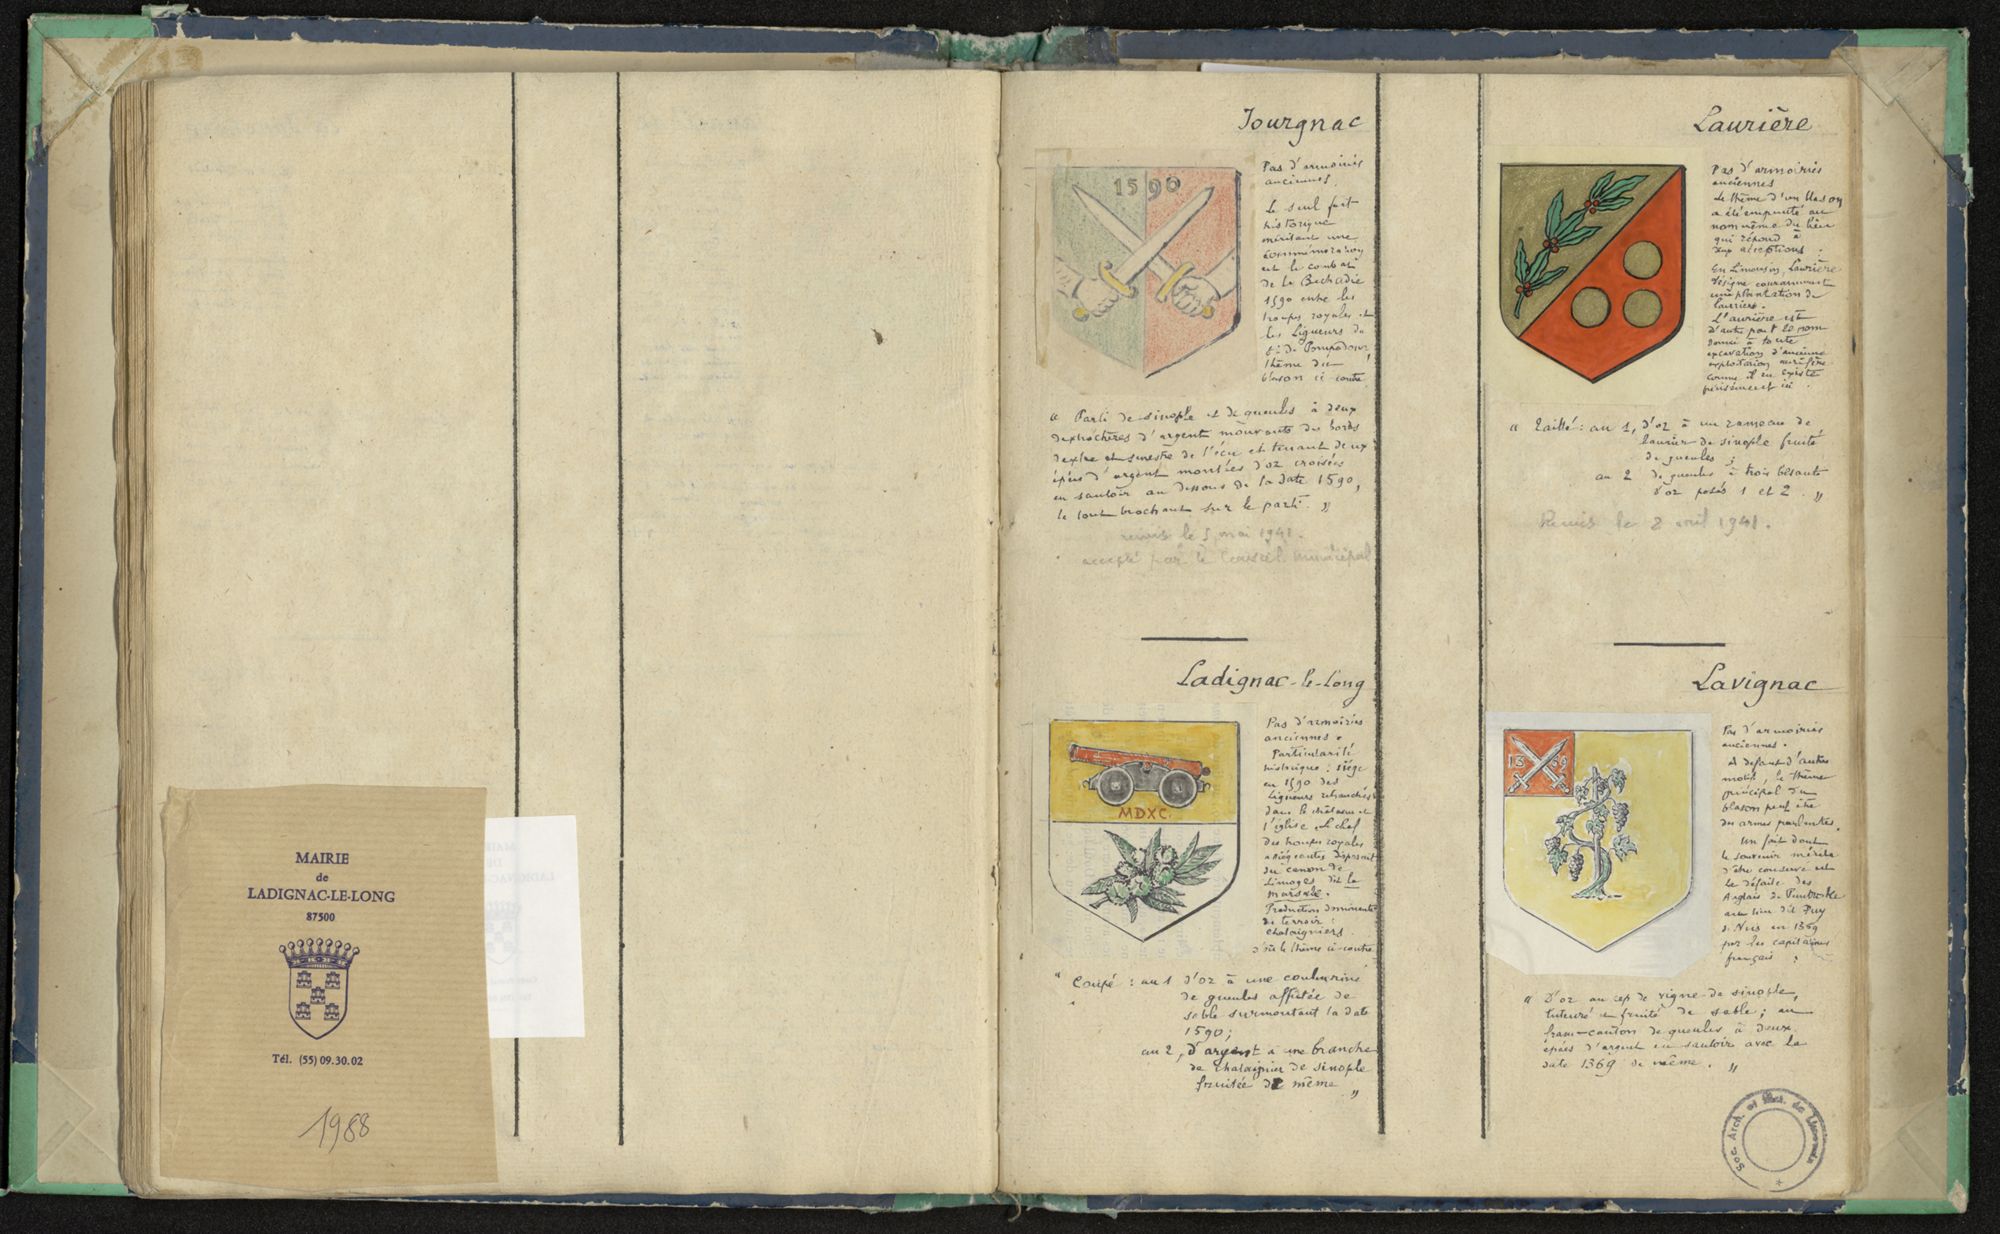 MAIRIE
de
LADIGNAC-LE-LONG
87500
Tél. (55) 09.30.02
1988
Jourgnac
1590
Pas d'armoiries
anciennes.
Le seul fait
historique
méritant une
commémoration
est le combat
de la Bechadie
1590 entre les
troupes royales et
les Ligueurs du
de Pompadour,
thème du
blason ci-contre
" Parti de sinople et de gueules à deux
dextrochères d'argent mouvants des bords
dextre et senestre de l'écu et tenant deux
épées d'argent montées d'or croisées
en sautoir au dessous de la date 1590,
le tout brochant sur le parti. "
remis le 5 mai 1941.
accepté par le Conseil municipal
Ladignac-le-Long
MDXC.
Pas d'armoiries
anciennes.
Particularité
historique : siège
en 1590 des
Ligueurs retranchés
dans le château et
l'église. Le chef
des troupes royales
assiégeantes disposait
du canon de
Limoges dit la
marsale.
Production dominante
du terroir :
chataigniers.
d'où le thème ci-contre
" Coupé : au 1 d'or à une couleuvrine
de gueules affûtée de
sable surmontant la date
1590;
au 2, d'argent à une branche
de chataignier de sinople
fruitée de même "
Laurière
Pas d'armoiries
anciennes
Le thème d'un blason
a été emprunté au
nom même du lieu
qui répond à
deux acceptions.
En Limousin, Laurière
désigne couramment
une plantation de
lauriers.
L'aurière est
d'autre part le nom
donné à toute
excavation d'ancienne
exploitation aurifère
comme il en existe
précisément ici.
" Taillé : au 1, d'or à un rameau de
laurier de sinople fruité
de gueules;
au 2 de gueules à trois besants
d'or posés 1 et 2. "
Remis le 8 avril 1941.
Lavignac
1369
Pas d'armoiries
anciennes.
A défaut d'autre
motif, le thème
principal du
blason peut être
des armes parlantes.
Un fait dont
le souvenir mérite
d'être conservé est
la défaite des
Anglais de
au lieu dit Puy
en 1369
par les capitaines
français.
" D'or au cep de vigne de sinople,
tuteuré et fruité de sable; au
franc-canton de gueules à deux
épées d'argent en sautoir avec la
date 1369 de même. "
Soc. Arch. et Hist. du Limousin